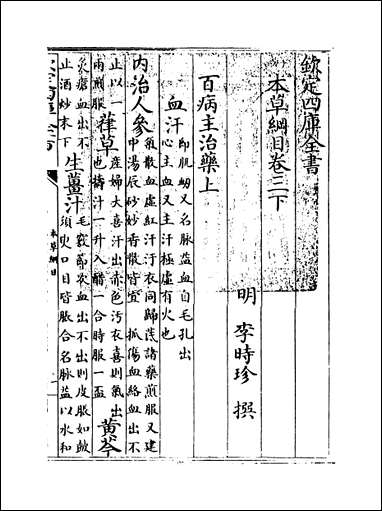 欽定四庫全書
本草綱目卷三下
明 李時珍 撰
百病主治藥上
血汗
即肌衂又名脉溢血自毛孔出
心主血又主汗極虛有火也
内治人參
氣散血虛紅汗汙衣同歸茋諸藥煎服又建
中湯辰砂妙香散皆宜 抓傷血絡血出不
止以一
兩煎服
葎草
産婦大喜汗出赤色汚衣喜則氣出
也擣汁一升入醋一合時服一盃
黄芩
灸瘡血出不
止酒炒末下
生薑汁
毛竅節次血出不出則皮脹如鼓
須臾口目皆脹合名脉溢以水和
本草綱目